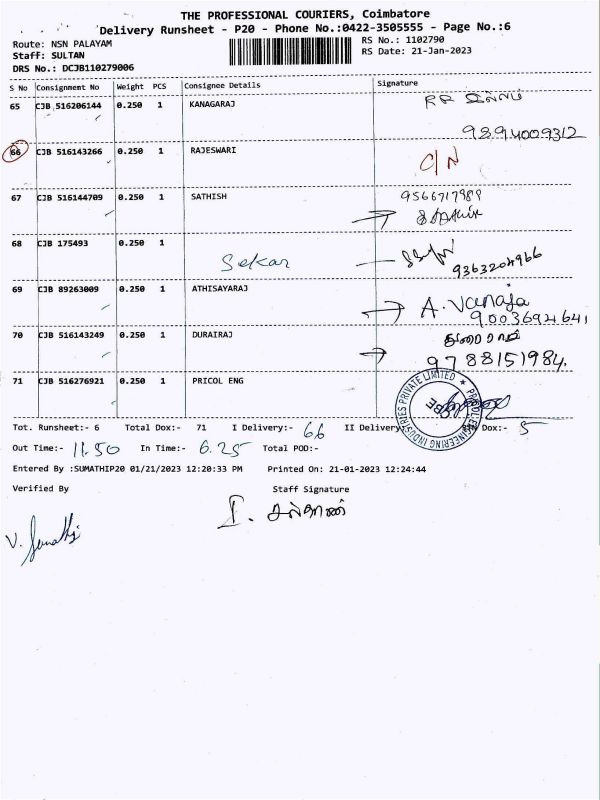 THE PROFESSIONAL COURIERS, Coimbatore
Delivery Runsheet - P20 - Phone No.:0422-3505555 - Page No.:6
Route: NSN PALAYAM
RS No.: 1102790
Staff: SULTAN
RS Date: 21-Jan-2023
DRS No.: DCJB110279006
S No Consignment No Weight PCS Consignee Details Signature
65 CJB 516206144 0.250 1 KANAGARAJ RR
9894009312
66 CJB 516143266 0.250 1 RAJESWARI C/N
67 CJB 516144709 0.250 1 SATHISH 9566717989
68 CJB 175493 0.250 1
Sekar 9363204966
69 CJB 89263009 0.250 1 ATHISAYARAJ A. Vanaja
9003692641
70 CJB 516143249 0.250 1 DURAIRAJ துரைராஜ்
9788151984.
71 CJB 516276921 0.250 1 PRICOL ENG
PRICOL ENGINEERING INDUSTRIES PRIVATE LIMITED ★
CBE
Tot. Runsheet:- 6 Total Dox:- 71 I Delivery:- 66 II Delivery:- Dox:- 5
Out Time:- 11.50 In Time:- 6.25 Total POD:-
Entered By :SUMATHIP20 01/21/2023 12:20:33 PM Printed On: 21-01-2023 12:24:44
Verified By Staff Signature
I. சுல்தான்
V. Sumathi